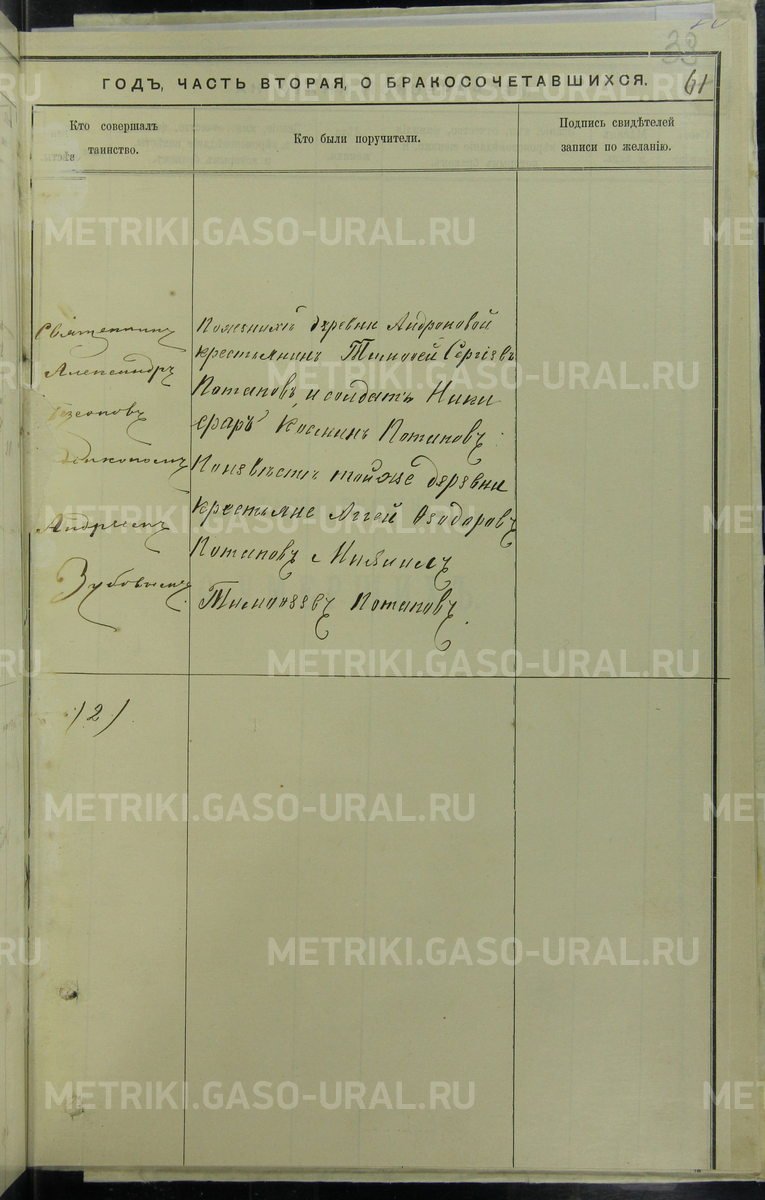 33
61
ГОДЪ, ЧАСТЬ ВТОРАЯ, О БРАКОСОЧЕТАВШИХСЯ.
Кто совершалъ
таинство.
Кто были поручители.
Подпись свидѣтелей
записи по желанію.
Священникъ
Александръ
діакономъ
Андреемъ
Зубовымъ
По женихѣ деревни Андроновой
крестьянинъ Тимофей Сергіевъ
Потаповъ, и солдатъ Ники
фаръ Косминъ Потаповъ.
По невѣстѣ той же деревни
крестьяне Аггей Ѳеодоровъ
Потаповъ и Михаилъ
Тимоѳеевъ Потаповъ.
/2/
METRIKI.GASO-URAL.RU